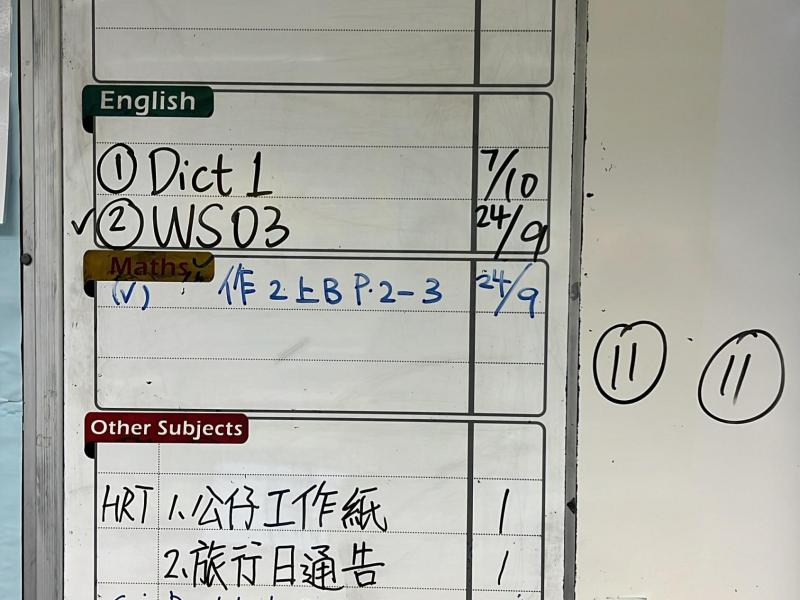 English
① Dict 1 7/10
✓ ② WS03 24/9
Maths
(✓) 作2上B P.2-3 24/9
⑪ ⑪
Other Subjects
HRT 1.公仔工作紙 1
2.旅行日通告 1